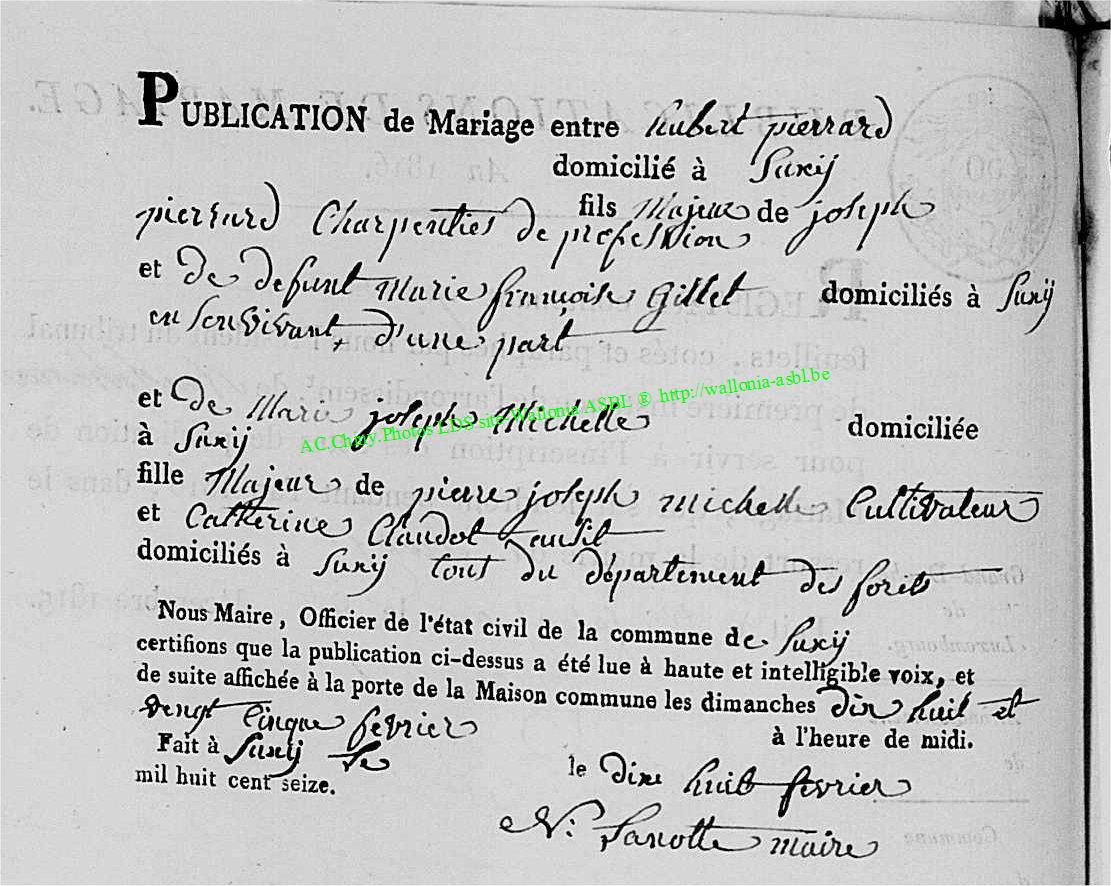 PUBLICATION de Mariage entre hubert pierrard
domicilié à Suxÿ
fils Majeur de joseph
pierrard Charpentier de profession
et de defunt Marie françoise Gillet domiciliés à Suxÿ
en son vivant, d'une part
et de Marie joseph Michelle domiciliée
à Suxÿ
AC.Chiny.Photos LDS site Wallonia ASBL ® http://wallonia-asbl.be
fille Majeur de pierre joseph michelle Cultivateur
et Catherine Claudot
domiciliés à Suxÿ tout du département des forets
Nous Maire, Officier de l'état civil de la commune de Suxÿ
certifions que la publication ci-dessus a été lue à haute et intelligible voix, et
de suite affichée à la porte de la Maison commune les dimanches dix huit et
vengt Cinque fevrier
à l'heure de midi.
Fait à Suxÿ le
le dixe huit fevrier
mil huit cent seize.
N: Lanotte maire